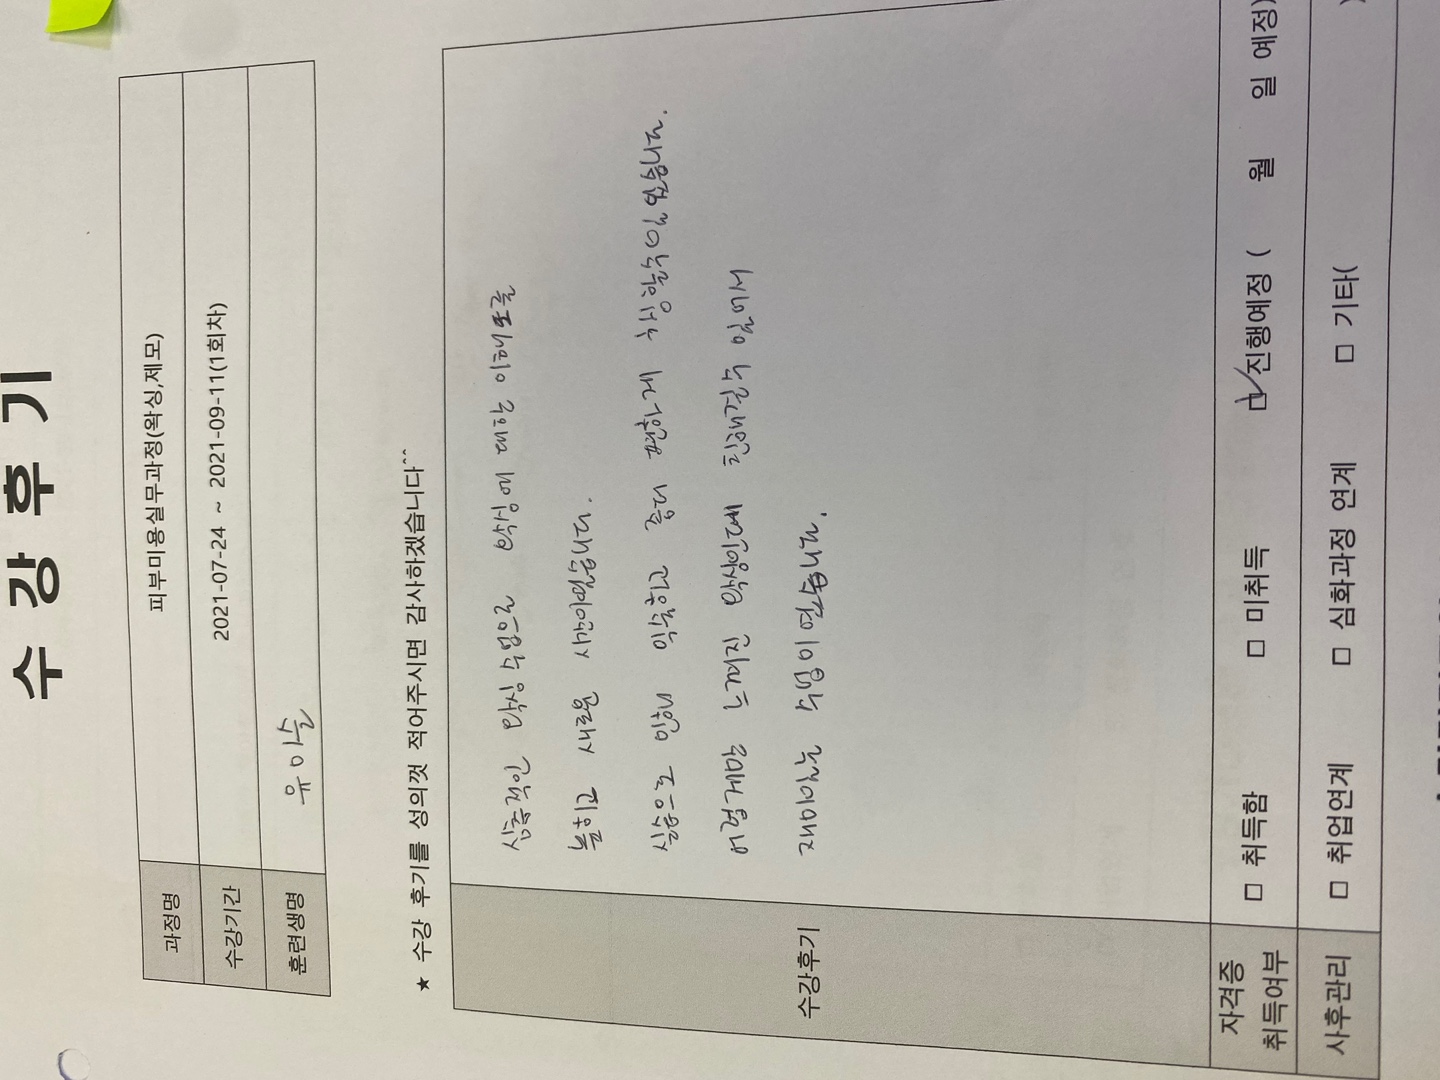 수 강 후 기
과정명 피부미용실무과정(왁싱,제모)
수강기간 2021-07-24 ~ 2021-09-11(1회차)
훈련생명 유이슬
★ 수강 후기를 성의껏 적어주시면 감사하겠습니다^^
수강후기
심층적인 왁싱 수업으로 왁싱에 대한 이해도를
높히고 새로운 시간이였습니다.
실습으로 인해 익숙하고 좀더 편하게 취창할수 있었습니다.
어렵게만 느껴진 왁싱인데 친해질수 있어서
재미있는 수업이였습니다.
자격증 취득여부 □ 취득함 □ 미취득 ☑ 진행예정 ( 월 일 예정)
사후관리 □ 취업연계 □ 심화과정 연계 □ 기타( )